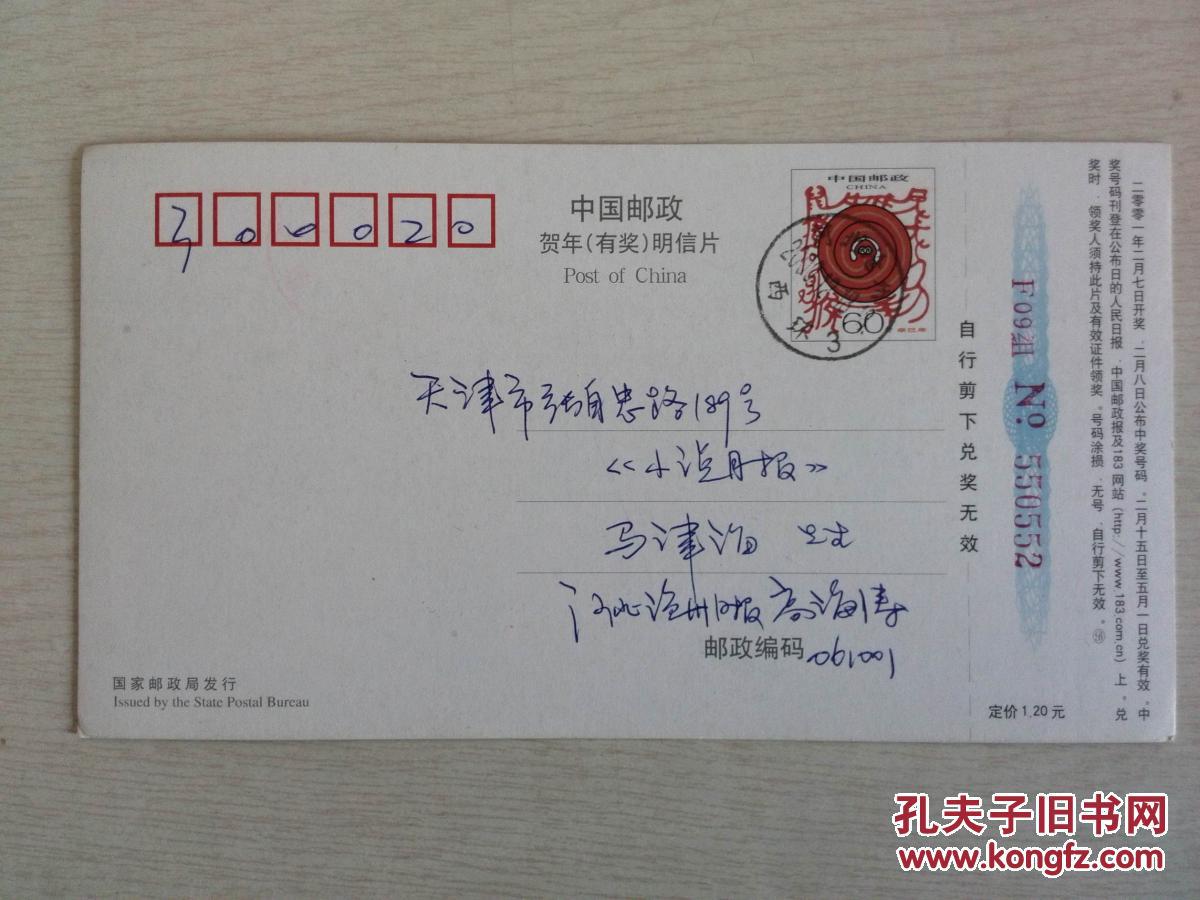 300020
中国邮政
贺年(有奖)明信片
Post of China
中国邮政
CHINA
60
辛巳年
3
天津市张自忠路189号
《小说月报》
马津海 先生
河北沧州日报 高海涛
邮政编码
061001
国家邮政局发行
Issued by the State Postal Bureau
自行剪下兑奖无效
F09组 No. 550552
定价1.20元
二零零一年二月七日开奖,二月八日公布中奖号码。二月十五日至五月一日兑奖有效。中
奖号码刊登在公布日的人民日报、中国邮政报及183网站(http://www.183.com.cn)上。兑
奖时,领奖人须持此片及有效证件领奖。号码涂损、无号、自行剪下无效。
孔夫子旧书网
www.kongfz.com